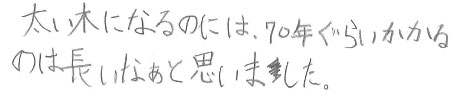 太い木になるのには、70年ぐらいかかる
のは長いなぁと思いました。